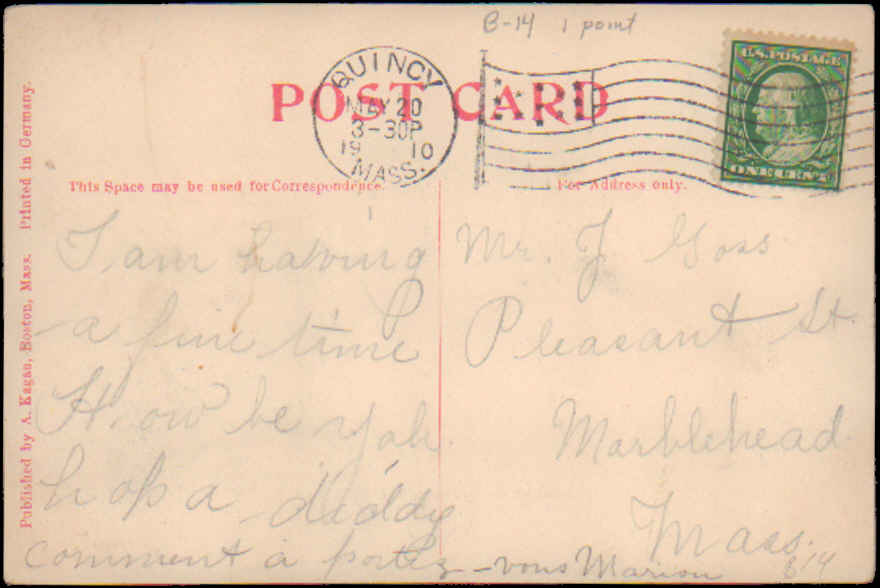 B-14 1 point
QUINCY
MAY 20
3-30P
1910
MASS.
POST CARD
U.S. POSTAGE
ONE CENT
This Space may be used for Correspondence.
For Address only.
Published by A. Kagan, Boston, Mass. Printed in Germany.
I am having
a fine time
How be yah
hopa diddy
comment a portez-vous Marion
Mr. J Goss
Pleasant St.
Marblehead
Mass.
B14